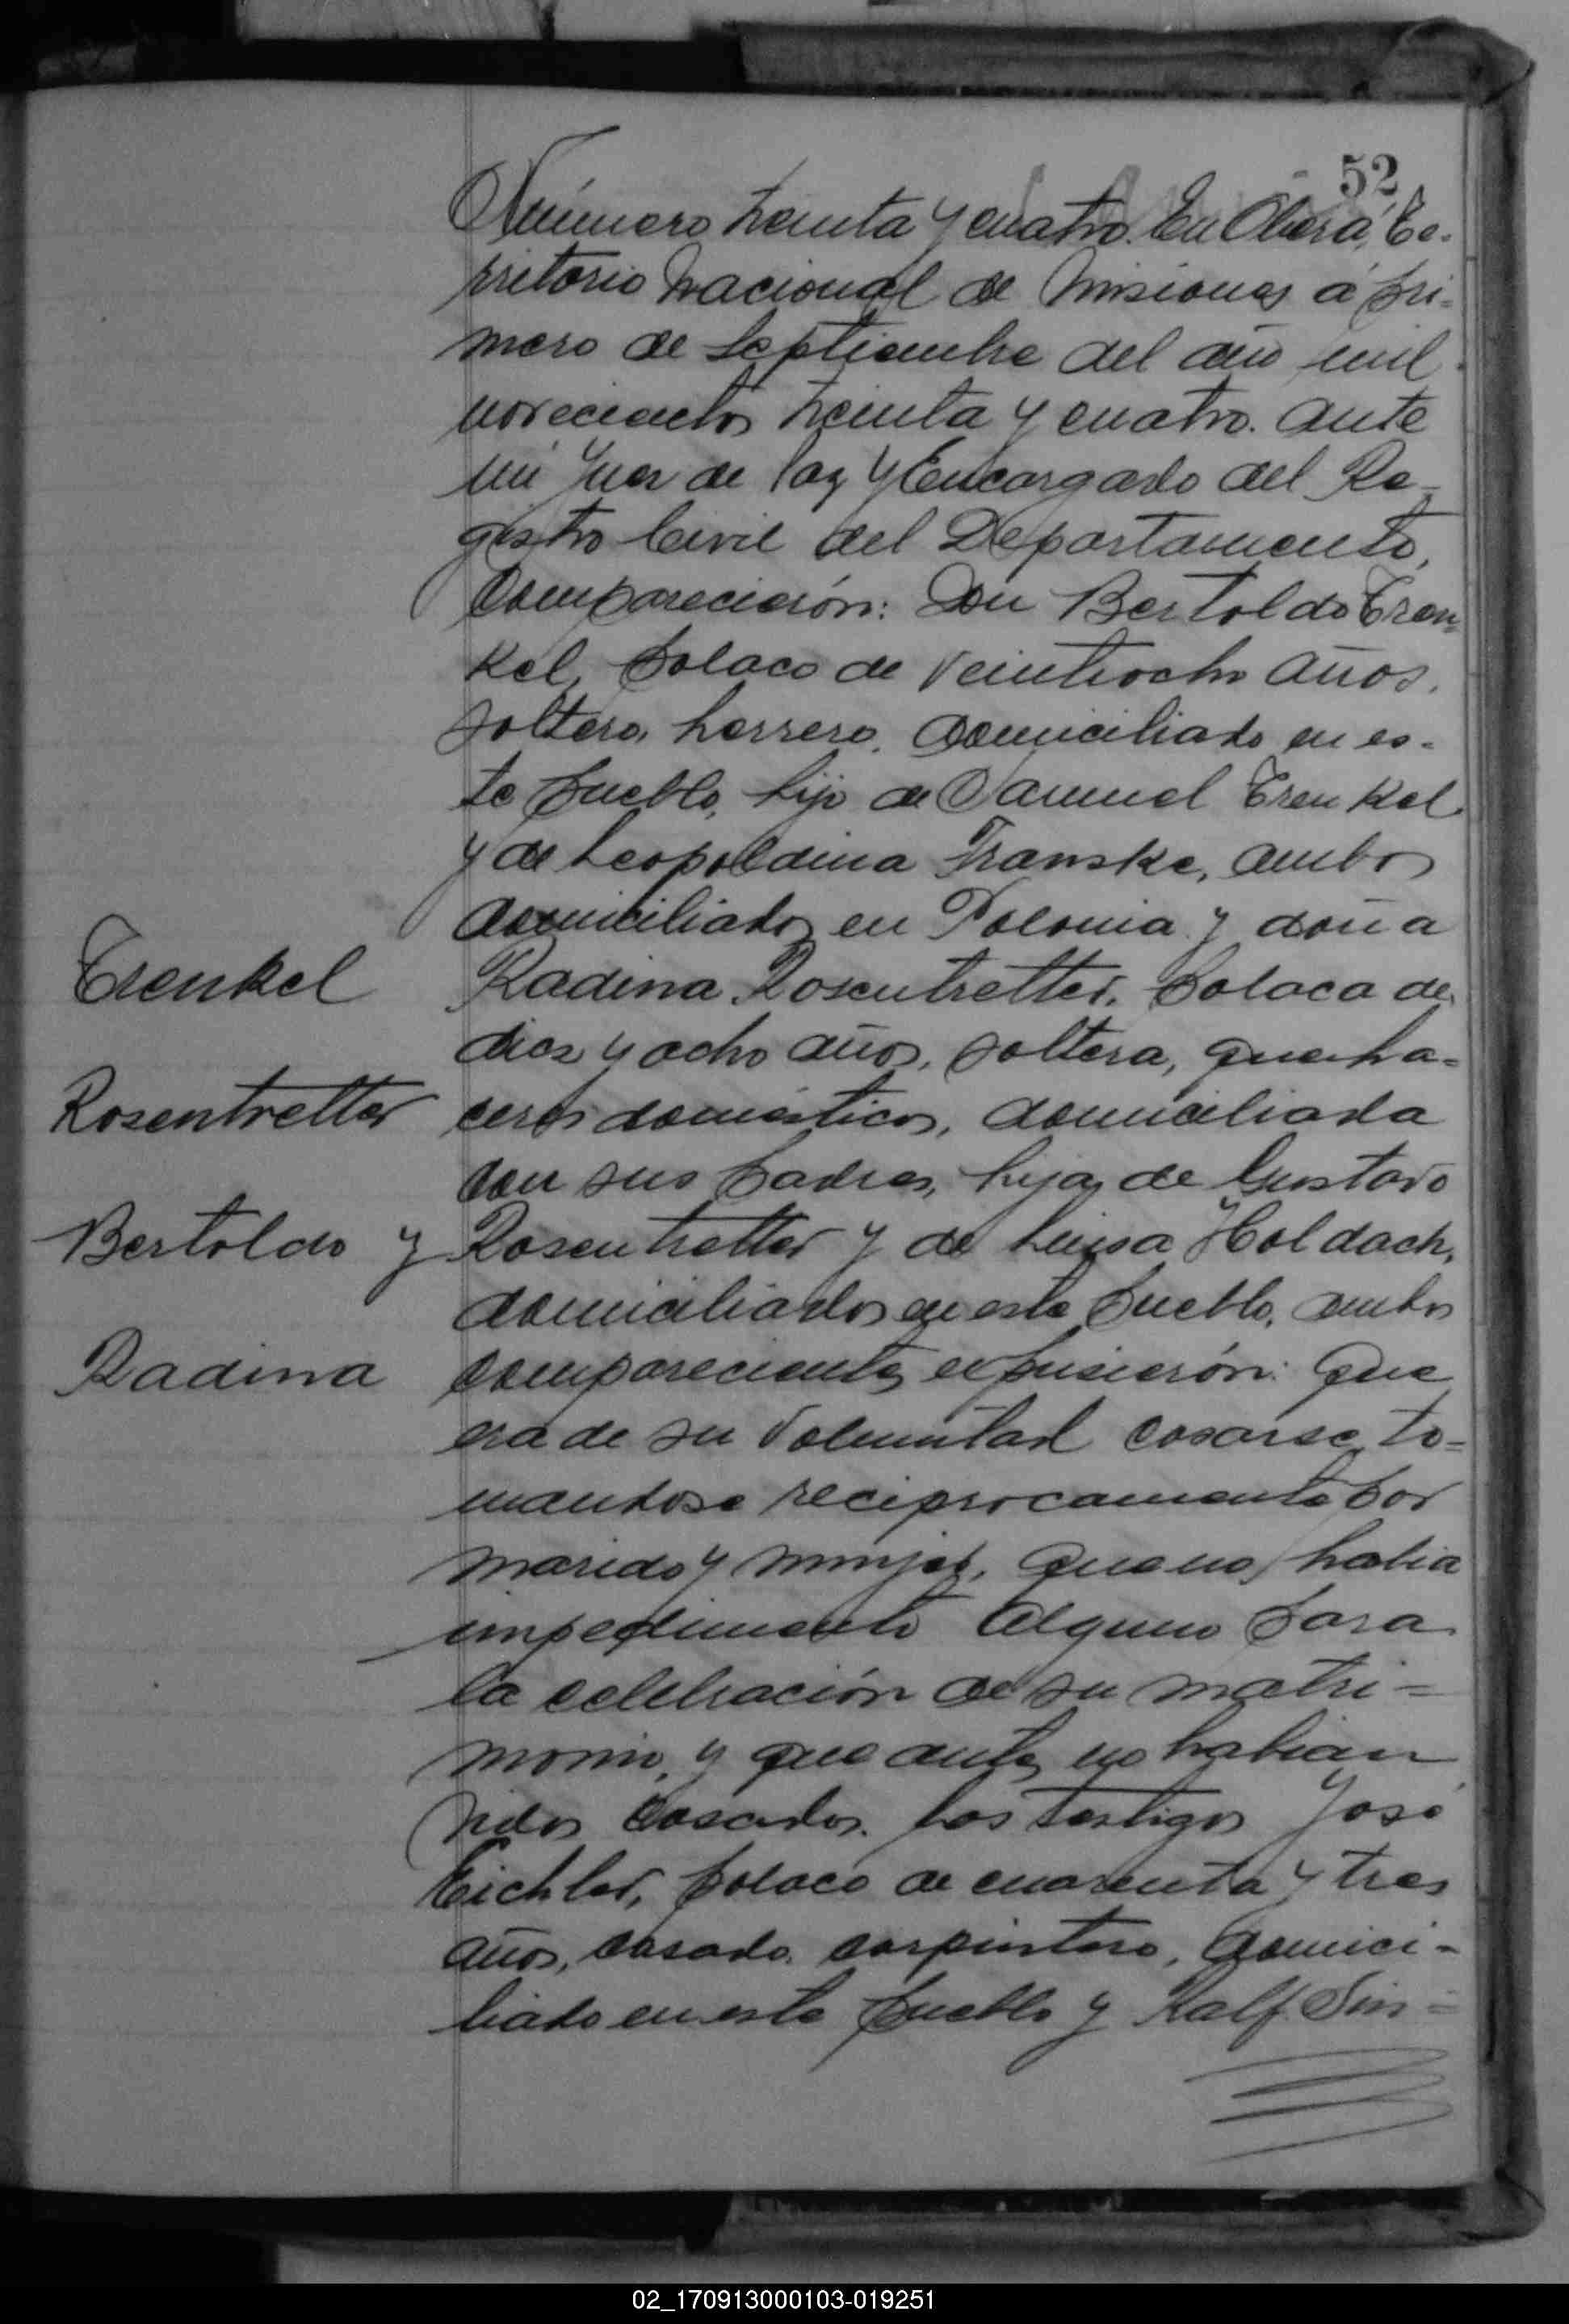 52
Número treinta y cuatro. En Oberá, Te-
rritorio Nacional de Misiones á pri-
mero de Septiembre del año mil
novecientos treinta y cuatro. ante
mi Juez de Paz y Encargado del Re-
gistro Civil del Departamento,
comparecierón: Don Bertoldo Tren-
kel, polaco de veintiocho años,
soltero, herrero, domiciliado en es-
te pueblo, hijo de Samuel Trenkel
y de Leopoldina Transke, ambos
domiciliados en Polonia y doña
Radina Rosentretter, polaca de
diez y ocho años, soltera, queha-
ceres domésticos, domiciliada
con sus padres, hija de Gustavo
Rosentretter y de Luisa Holdach,
domiciliados en este pueblo, ambos
comparecientes expusierón: Que
era de su voluntad casarse, to-
mandose reciprocamente por
marido y mujer, que no habia
impedimento alguno para
la celebración de su matri-
monio, y que antes no habian
sidos casados. Los testigos José
Eichler, polaco de cuarenta y tres
años, casado, carpintero, domici-
liado en este pueblo y Ralf Sin-
Trenkel
Rosentretter
Bertoldo y
Radina
02_170913000103-019251